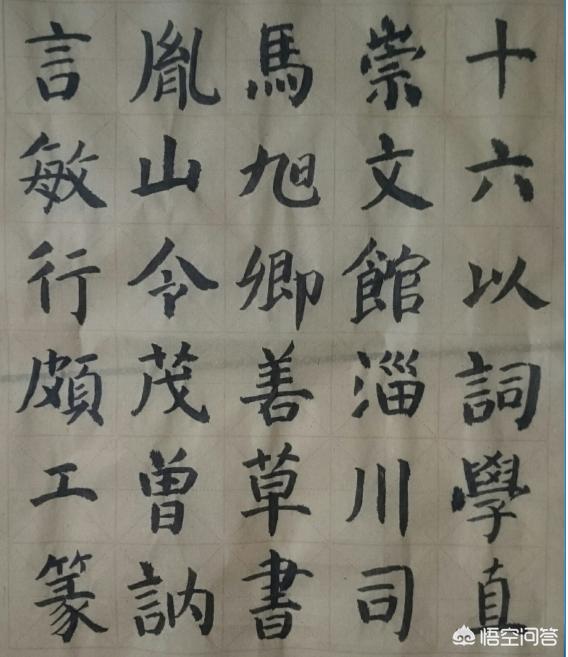 十六以詞學直
崇文館淄川司
馬旭卿善草書
胤山令茂曾訥
言敏行頗工篆
悟空问答